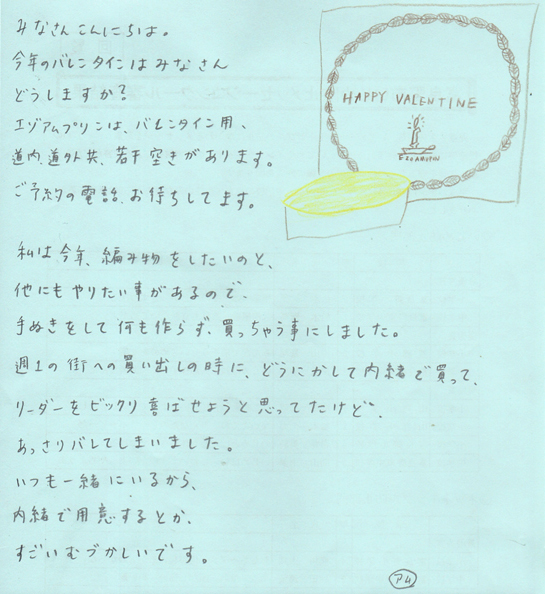 みなさんこんにちは。
今年のバレンタインはみなさん
どうしますか?
エゾアムプリンは、バレンタイン用、
道内、道外共、若干空きがあります。
ご予約の電話、お待ちしてます。
HAPPY VALENTINE
EZOAMUPRIN
私は今年、編み物をしたいのと、
他にもやりたい事があるので、
手ぬきをして何も作らず、買っちゃう事にしました。
週1の街への買い出しの時に、どうにかして内緒で買って、
リーダーをビックリ喜ばせようと思ってたけど、
あっさりバレてしまいました。
いつも一緒にいるから、
内緒で用意するとか、
すごいむづかしいです。
アム